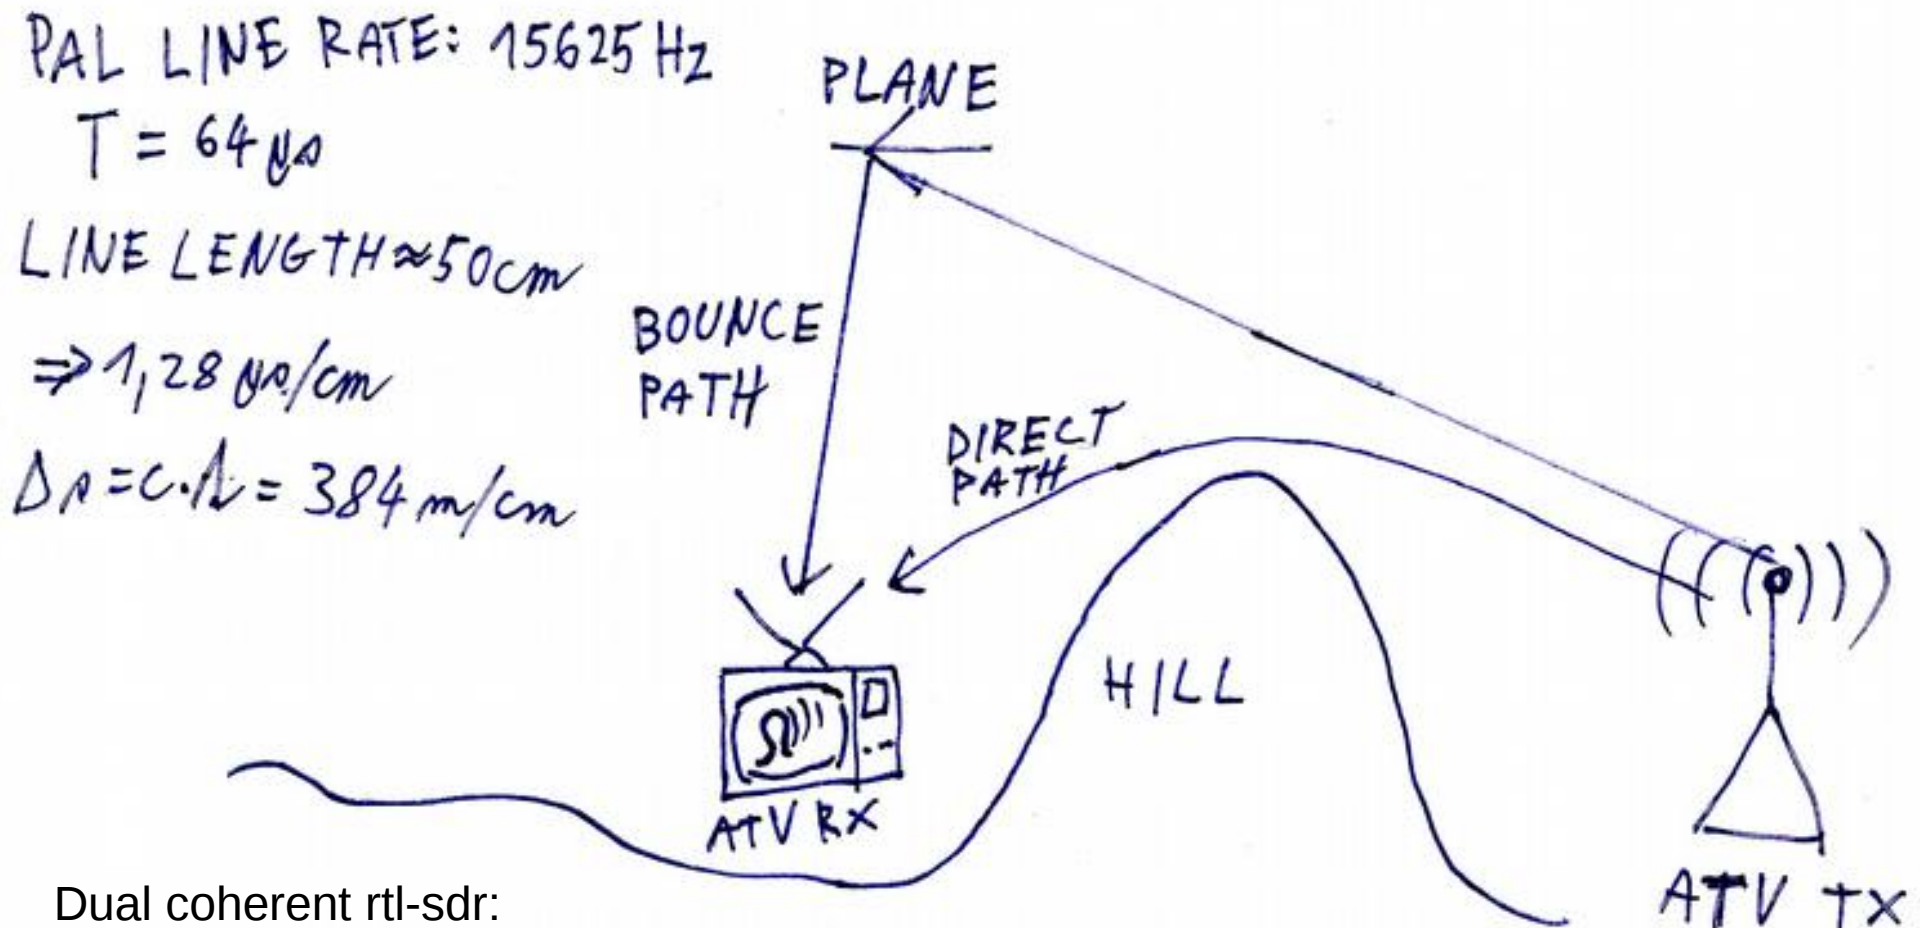 PAL LINE RATE: 15625 Hz
T = 64 μs
LINE LENGTH ≈ 50cm
⇒ 1,28 μs/cm
Δs = c·t = 384 m/cm
PLANE
BOUNCE
PATH
DIRECT
PATH
HILL
ATV RX
ATV TX
Dual coherent rtl-sdr: